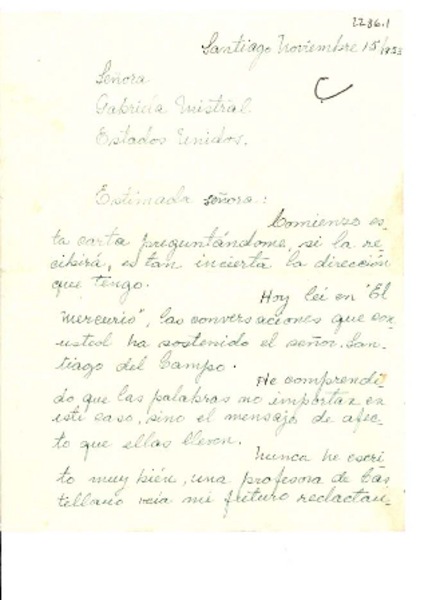 2286.1
Santiago Noviembre 15/1953
Señora
Gabriela Mistral.
Estados Unidos.
Estimada señora:
Comienzo es-
ta carta preguntándome, si la re-
cibirá, es tan incierta la dirección
que tengo.
Hoy leí en "El
Mercurio", las conversaciones que con
usted ha sostenido el señor San-
tiago del Campo.
He comprendi-
do que las palabras no importan en
este caso, sino el mensaje de afec-
to que ellas lleven.
Nunca he escri-
to muy bién, una profesora de Cas
tellano veía mi futuro redactan-